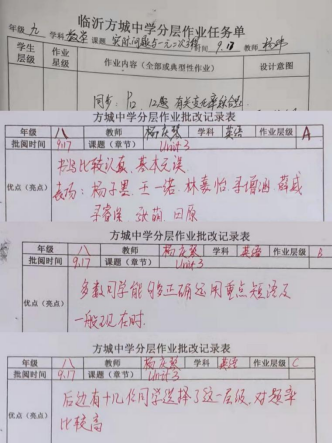 临沂方城中学分层作业任务单
年级 九 学科 数学 课题 实际问题与一元二次方程 时间 9.17
学生层级 作业星级 作业内容（全部或典型性作业） 设计意图
方城中学分层作业批改记录表
年级 八 教师 学科 英语 作业层级 A
批阅时间 9.17 课题（章节） Unit 3
优点（亮点） 书写比较认真，基本无误.
表扬：杨子墨 王一诺 林嘉怡
张萌 田原
方城中学分层作业批改记录表
年级 八 教师 学科 英语 作业层级 B
批阅时间 9.17 课题（章节） Unit 3
优点（亮点） 多数同学能够正确运用重点短语及
一般现在时.
方城中学分层作业批改记录表
年级 八 教师 学科 英语 作业层级 C
批阅时间 9.17 课题（章节） Unit 3
优点（亮点） 后边有十几位同学选择了这一层级，对题率
比较高